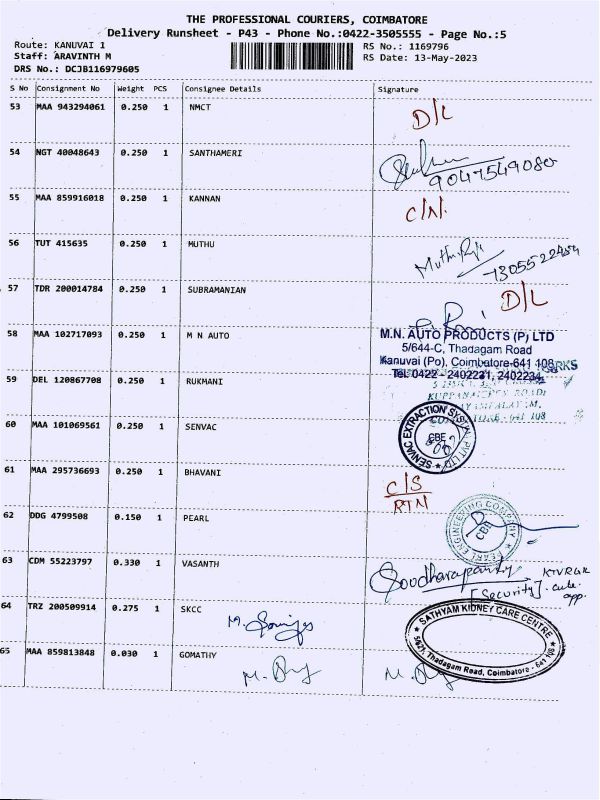 THE PROFESSIONAL COURIERS, COIMBATORE
Delivery Runsheet - P43 - Phone No.:0422-3505555 - Page No.:5
Route: KANUVAI 1
RS No.: 1169796
Staff: ARAVINTH M
RS Date: 13-May-2023
DRS No.: DCJB116979605
S No Consignment No Weight PCS Consignee Details Signature
53 MAA 943294061 0.250 1 NMCT D/L
54 NGT 40048643 0.250 1 SANTHAMERI
9047549080
55 MAA 859916018 0.250 1 KANNAN C/N.
56 TUT 415635 0.250 1 MUTHU
57 TDR 200014784 0.250 1 SUBRAMANIAN D/L
58 MAA 102717093 0.250 1 M N AUTO
M.N. AUTO PRODUCTS (P) LTD
5/644-C, Thadagam Road
Kanuvai (Po), Coimbatore-641 108
Tel:0422 - 2402231, 2402234
59 DEL 120867708 0.250 1 RUKMANI
641 108
60 MAA 101069561 0.250 1 SENVAC
SENVAC EXTRACTION SYSTEM PVT LTD
CBE
61 MAA 295736693 0.250 1 BHAVANI C/S
RTN
62 DDG 4799508 0.150 1 PEARL
PEARL ENGINEERING COMPANY
CBE
63 CDM 55223797 0.330 1 VASANTH
[Security]
64 TRZ 200509914 0.275 1 SKCC
SATHYAM KIDNEY CARE CENTRE
Thadagam Road, Coimbatore - 641 108
65 MAA 859813848 0.030 1 GOMATHY